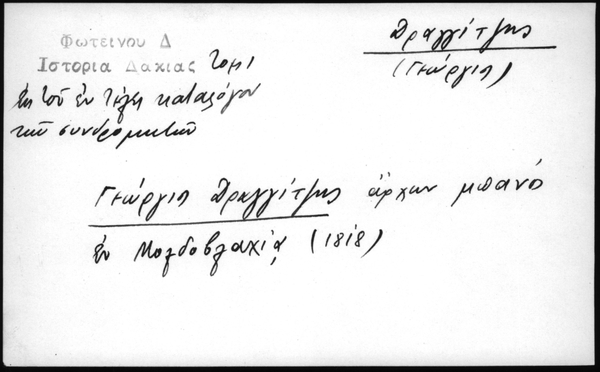 Φωτεινου Δ
Ιστορια Δακιας Τομ 1
Ἐκ τοῦ ἐν τέλει καταλόγου
τῶν συνδρομητῶν
Δραγγίτζης
(Γεώργιος)
Γεώργιος Δραγγίτζης ἄρχων μπανός
ἐν Μολδοβλαχίᾳ (1818)